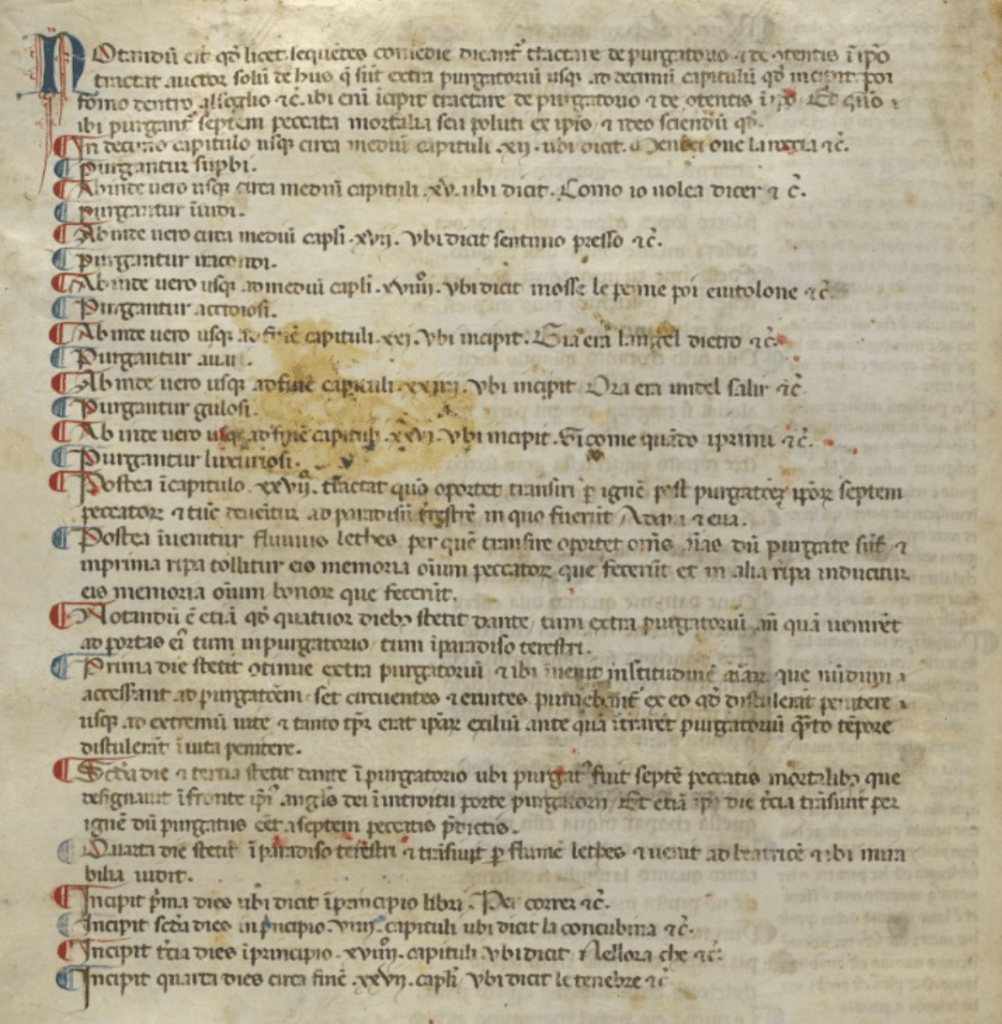 Notandū est qđ licet sequētes comedie dicant᷑ tractare de purgatorio ⁊ de ɔtentis ī ip̄o
tractat auctor solū de hiis q̄ sūt extra purgatoriū usqꝫ ad decimū capitulū qđ incipit. poi
fōmo dentro al soglio ⁊ c̄. ibi enī īcipit tractare de purgatorio ⁊ de ɔtentis ī ip̄o. Et quō
ibi purgant᷑ septem peccata mortalia seu poluti ex ip̄is. ⁊ ideo sciendū qđ.
¶ In decimo capitulo usqꝫ circa mediū capituli .xii. ubi dicit. ⁊ c̄.
¶ Purgantur suꝑbi.
¶ Ab inde vero usqꝫ circa mediū capituli .xv. ubi dicit. Como io uolea dicer ⁊ c̄.
¶ Purgantur īuidi.
¶ Ab inde uero circa mediū capli .xvii. vbi dicit sentimo presso ⁊ c̄.
¶ Purgantur iracondi.
¶ Ab inde vero usqꝫ ad mediū capli .xviiij. vbi dicit mosse le penne poi euitolone ⁊ c̄.
¶ Purgantur accidiosi.
¶ Ab inde vero usqꝫ ad finē capituli .xxi. vbi incipit. Gia era langel dietro ⁊ c̄.
¶ Purgantur auari.
¶ Ab inde vero usqꝫ ad finē capituli .xxiiii. vbi incipit. Ora era undel salir ⁊ c̄.
¶ Purgantur gulosi.
¶ Ab inde vero usqꝫ ad finē capituli .xxvi. vbi incipit. Si come quādo i primi ⁊ c̄.
¶ Purgantur luxuriosi.
¶ Postea ī capitulo .xxvij. tractat quō oportet transiri ꝑ ignē post purgatōeꝫ ip̄oꝝ septem
peccatoꝝ ⁊ tūc deuenitur ad paradisū tr̄estrē in quo fuerūt Adam ⁊ eua.
¶ Postea īuenitur fluuius lethes per quē transire oportet om̄s aīas dū purgate sūt ⁊
in prima ripa tollitur eis memoria oīum peccatoꝝ que fecerūt et in alia ripa inducitur
eis memoria oīum bonoꝝ que fecerūt.
¶ Notandū ē etiā qđ quatuor diebꝫ stetit dante / tum extra purgatoriū añ quā ueniret
ad portas eī tum in purgatorio / tum ī paradiso terestri.
¶ Prima die stetit ɔtinue extra purgatoriū ⁊ ibi inuenit aīaꝝ que nūdum
accesserant ad purgatōem / set circuentes ⁊ euntes puniebant᷑ ex eo qđ distulerāt penitere
usqꝫ ad extremū uite ⁊ tanto tp̄r erat ip̄aꝝ exiliū ante quā ītraret purgatoriū q̄ᵃto tēpore
distulerāt ī uita penitere.
¶ Secūda die ⁊ tertia stetit dante ī purgatorio ubi purgat᷑ fuit septē peccatis mortalibꝫ que
designauit ī fronte ip̄i anglus dei ī introitu porte purgatorii. Et etiā ip̄a die t̄cia trāsiuit per
ignē dū purgatus eēt a septem peccatis p̄dictis.
¶ Quarta die stetit ī paradiso terestri ⁊ trāsiuit ꝑ flumē lethes ⁊ uenit ad beatricē ⁊ ibi mira
bilia uidit.
¶ Incipit p̄ma dies ubi dicit ī principio libri. Per correr ⁊ c̄.
¶ Incipit sc̄da dies in p̄ncipio .viiii. capituli ubi dicit la concubina ⁊ c̄.
¶ Incipit t̄cia dies ī principio .xviiij. capituli. vbi dicit Nellora che ⁊ c̄.
¶ Incipit quarta dies circa finē .xxvij. capli vbi dicit le tenebre ⁊ c̄